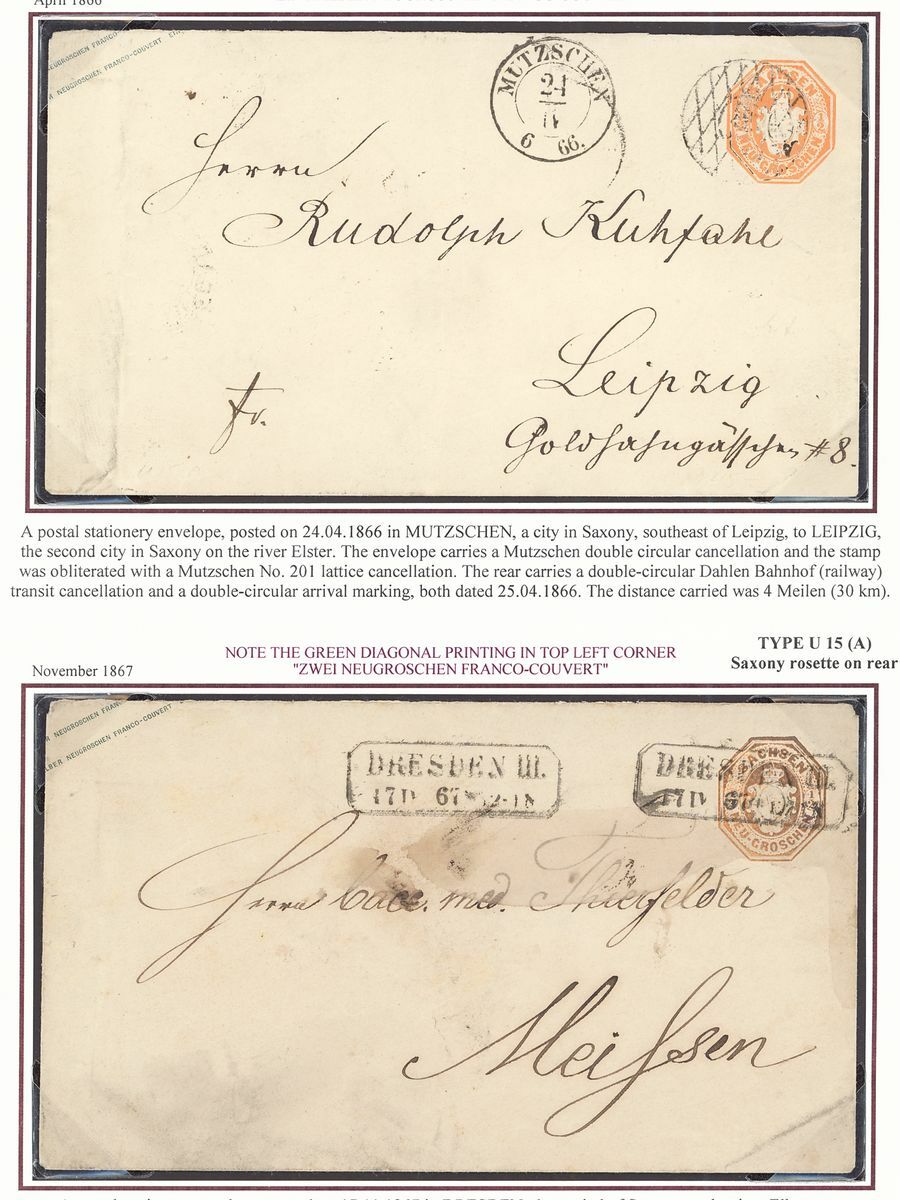 April 1866
NEUGROSCHEN FRANCO-COUVERT
NEUGROSCHEN FRANCO-COUVERT
MUTZSCHEN
24
IV
6 66.
Herrn
Rudolph Kuhfahl
Leipzig
Fr.
Goldhahngässchen #8.
A postal stationery envelope, posted on 24.04.1866 in MUTZSCHEN, a city in Saxony, southeast of Leipzig, to LEIPZIG,
the second city in Saxony on the river Elster. The envelope carries a Mutzschen double circular cancellation and the stamp
was obliterated with a Mutzschen No. 201 lattice cancellation. The rear carries a double-circular Dahlen Bahnhof (railway)
transit cancellation and a double-circular arrival marking, both dated 25.04.1866. The distance carried was 4 Meilen (30 km).
November 1867
NOTE THE GREEN DIAGONAL PRINTING IN TOP LEFT CORNER
"ZWEI NEUGROSCHEN FRANCO-COUVERT"
TYPE U 15 (A)
Saxony rosette on rear
NEUGROSCHEN FRAN
NEUGROSCHEN FRANCO-COUVERT
DRESDEN III.
17 IV 67
DRESDEN III.
17 IV 67
SACHSEN
NEU-GROSCHEN
Herrn Bacc. med. Thierfelder
Meissen